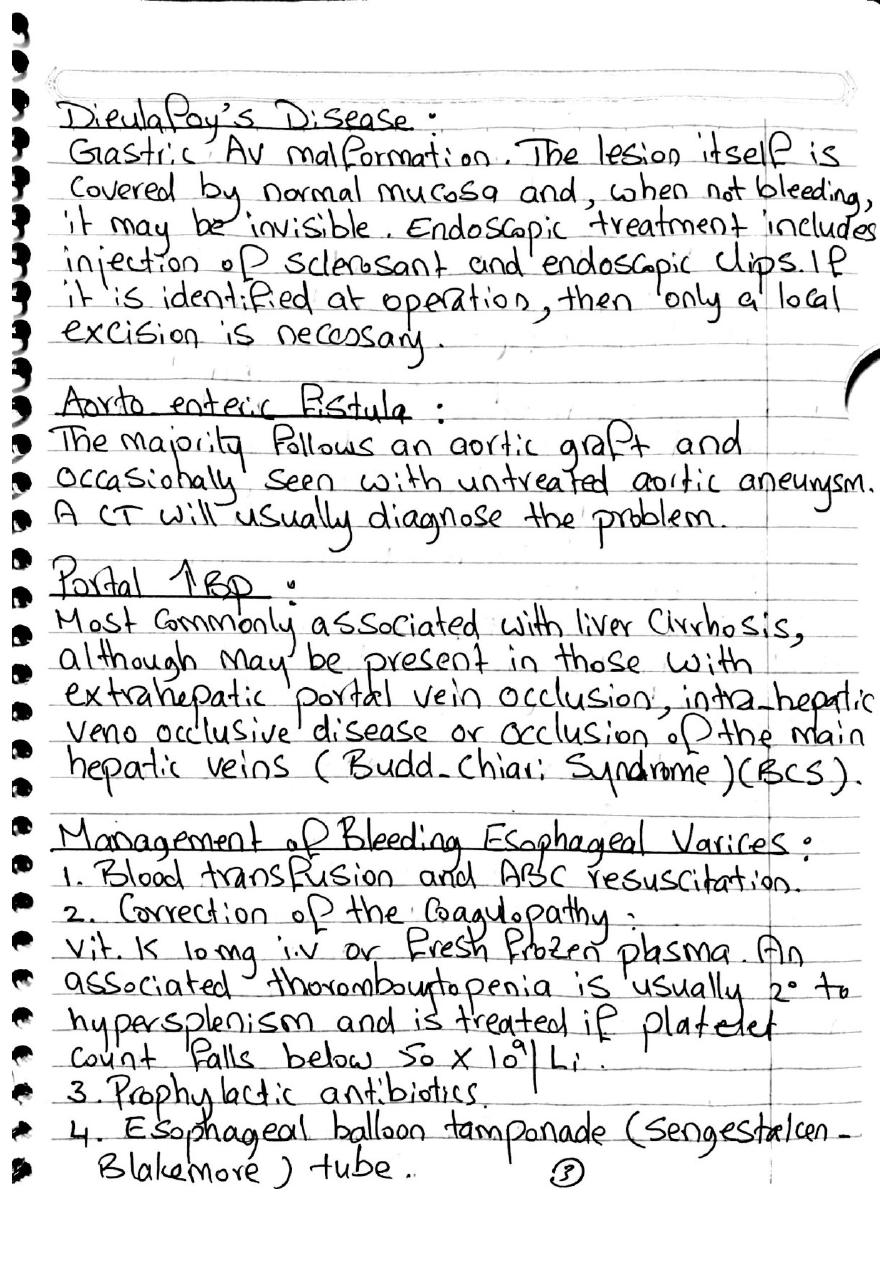 Dieulafoy's Disease :
Gastric AV malformation. The lesion itself is
covered by normal mucosa and, when not bleeding,
it may be invisible. Endoscopic treatment includes
injection of sclerosant and endoscopic clips. If
it is identified at operation, then only a local
excision is necessary.
Aorto enteric Fistula :
The majority follows an aortic graft and
occasionally seen with untreated aortic aneurysm.
A CT will usually diagnose the problem.
Portal ↑BP :
Most Commonly associated with liver Cirrhosis,
although may be present in those with
extrahepatic portal vein occlusion, intra-hepatic
veno occlusive disease or occlusion of the main
hepatic veins ( Budd-Chiari Syndrome)(BCS).
Management of Bleeding Esophageal Varices :
1. Blood transfusion and ABC resuscitation.
2. Correction of the Coagulopathy :
Vit. K 10 mg i.v or fresh frozen plasma. An
associated thorombocytopenia is usually 2° to
hypersplenism and is treated if platelet
count falls below 50 x 10⁹/Li.
3. Prophylactic antibiotics.
4. Esophageal balloon tamponade (Sengestaken-
Blakemore) tube.
3